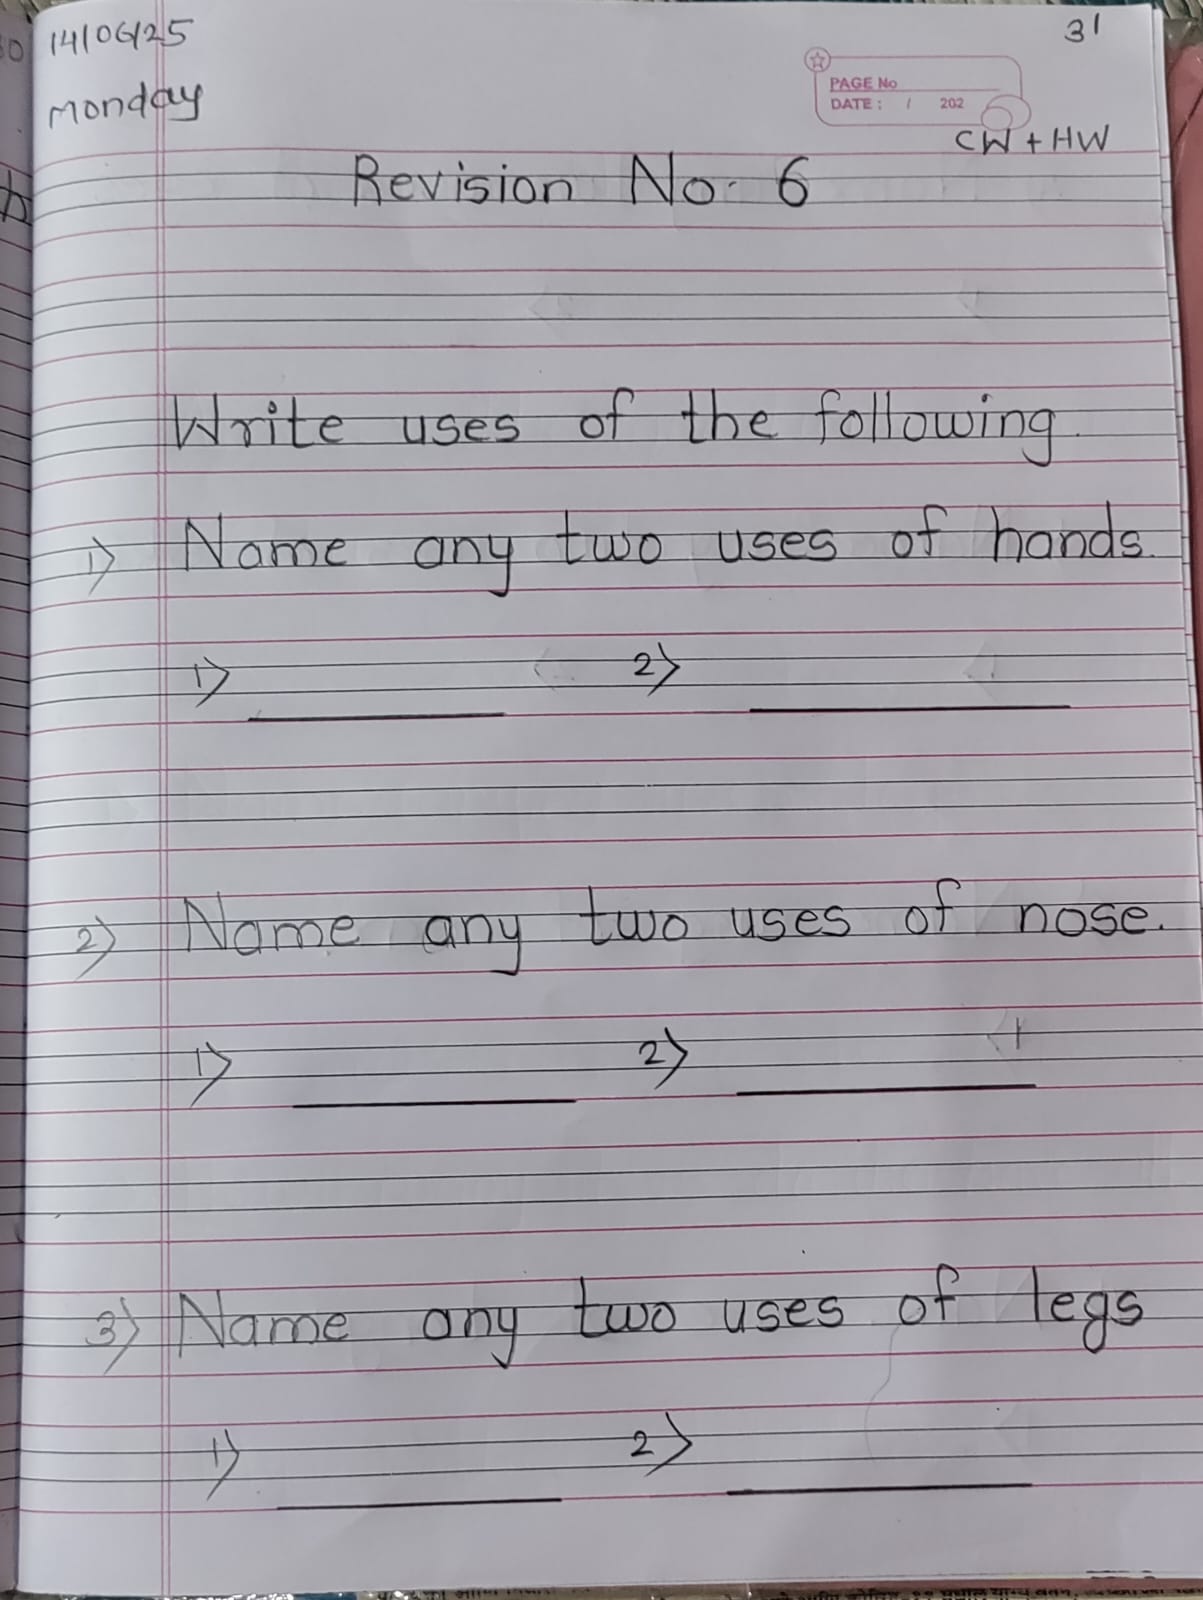 14/06/25
31
Monday
PAGE No
DATE : / 202
CW + HW
Revision No. 6
Write uses of the following.
1) Name any two uses of hands.
1) 2)
2) Name any two uses of nose.
1) 2)
3) Name any two uses of legs
1) 2)